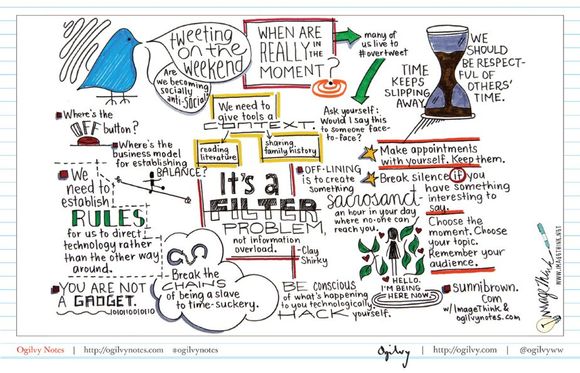 tweeting
on the
weekend
Are
we becoming
socially
anti-social?
WHEN ARE
REALLY IN THE
MOMENT?
many of
us live to
#overtweet
TIME
KEEPS
SLIPPING
AWAY.
WE
SHOULD
BE RESPECT-
FUL OF
OTHERS'
TIME.
Where's the
OFF button?
Where's the
business model
for establishing
BALANCE?
We need to
give tools a
CONTEXT.
reading
literature
sharing
family history
Ask yourself:
Would I say this
to someone face-
to-face?
Make appointments
with yourself. Keep them.
Break silence if you
have something
interesting to
say.
Choose the
moment. Choose
your topic.
Remember your
audience.
We
need to
establish
RULES
for us to direct
technology rather
than the other way
around.
IT'S a
FILTER
PROBLEM,
not information
overload.
-Clay
Shirky
OFF-LINING
is to create
something
sacrosanct
an hour in your day
where no-one can
reach you.
HELLO.
I'M BEING
HERE NOW.
YOU ARE NOT
A GADGET.
Break the
CHAINS
of being a slave
to time-suckery.
BE CONSCIOUS
of what's happening
to you technologically.
HACK yourself.
sunnibrown.
com
w/ImageThink &
ogilvynotes.com
ImageThink
WWW.IMAGETHINK.NET
Ogilvy Notes | http://ogilvynotes.com #ogilvynotes
Ogilvy | http://ogilvy.com | @ogilvyww